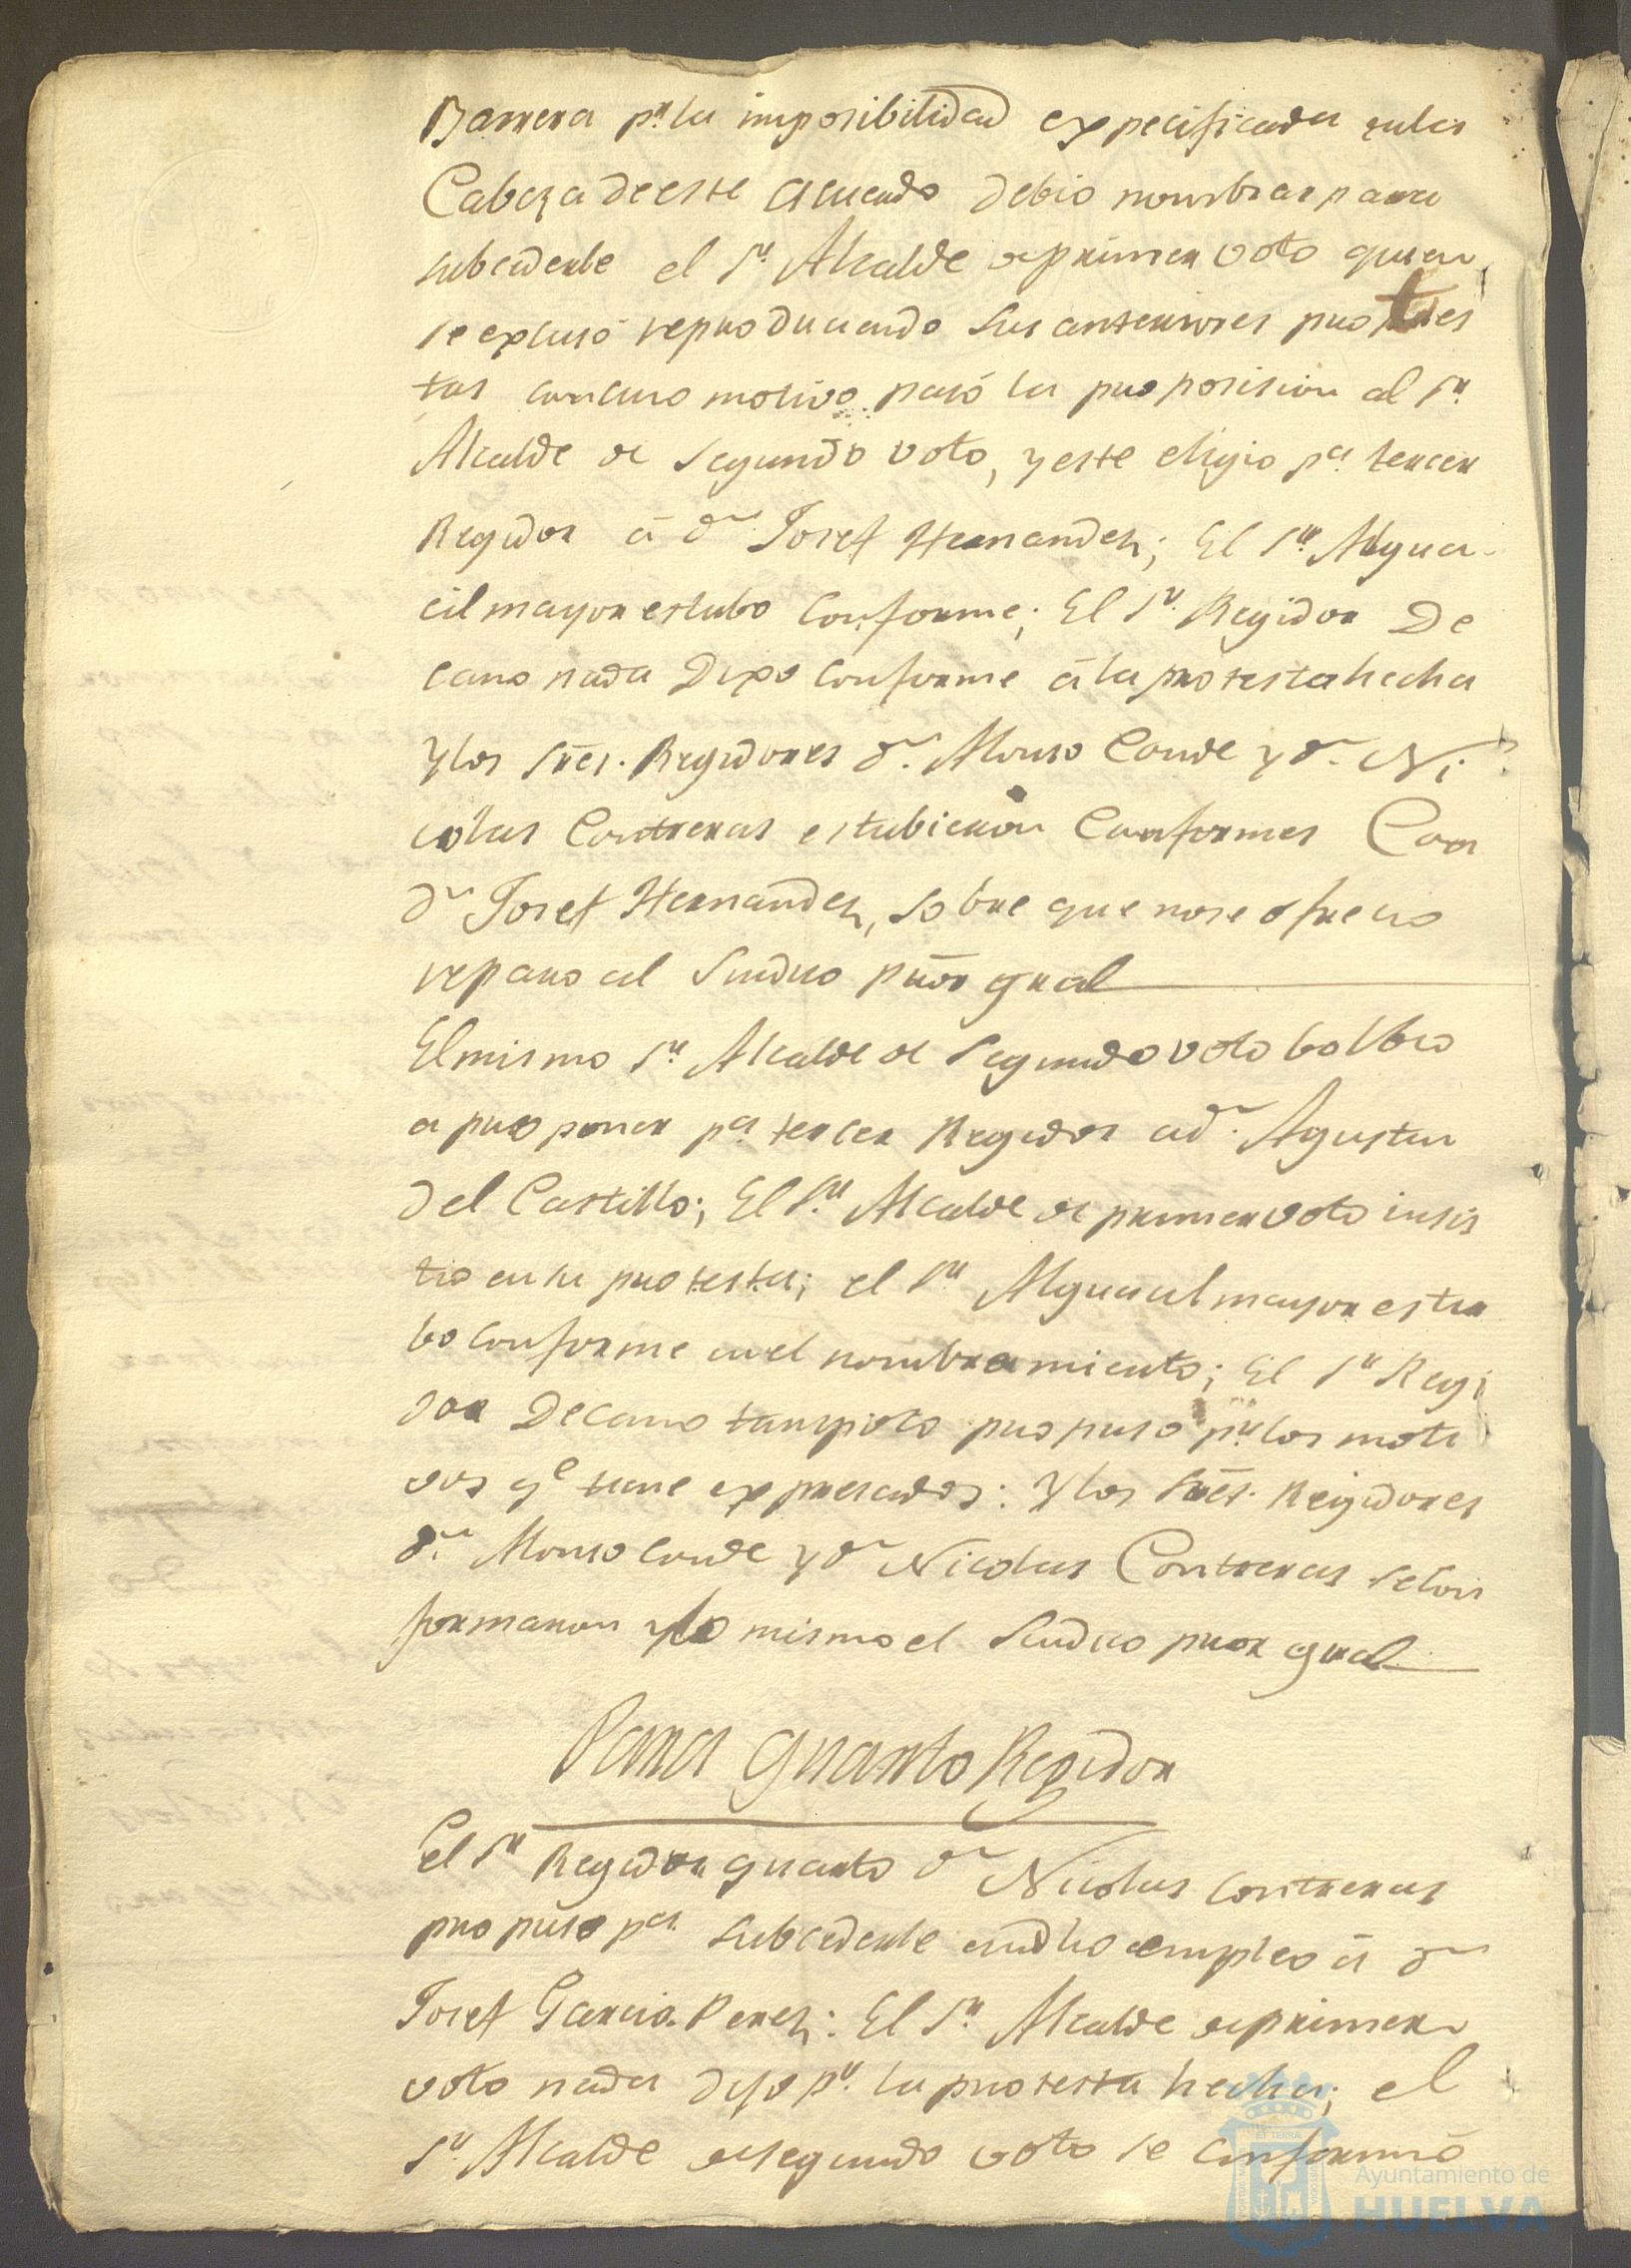 Barrera pr. la imposibilidad expecificada en la
Cabeza de este acuerdo debio nombrar para
subcederle el Sr. Alcalde de primer voto quien
se excusó reproduciendo sus anteriores protes
tas con cuio motivo pasó la proposision al Sr.
Alcalde de Segundo voto, y este eligio pa. tercer
Regidor á dn. Josef Hernandez; El Sr. Algua
cil mayor estubo Conforme; El Sr. Regidor De
cano nada Dixo conforme á la protesta hecha
y los Sres. Regidores dn. Alonso Conde y dn. Ni
colas Contreras estubieron Conformes Con
dn Josef Hernandez, sobre que no se ofrecio
reparo al Sindico Prôr gral
El mismo Sr. Alcalde de Segundo voto bolbio
a proponer pa. tercer Regidor a dn. Agustin
del Castillo; El Sr. Alcalde de primer voto insis
tio en su protesta; el Sr. Alguacil mayor estu
bo conforme en el nombramiento; El Sr. Regi
dor Decano tampoco propuso pr. los moti
vos qe tiene expresados: y los Sres. Regidores
dn. Alonso Conde y dn Nicolas Contreras se con
formaron y lo mismo el Sindico pror gral
Para quarto Regidor
El Sr. Regidor quarto dn Nicolas Contreras
propuso pa. subcederle en dho empleo á dn
Josef Garcia Perez: El Sr. Alcalde de primer
voto nada dijo pr. la protesta hecha; el
Sr. Alcalde de segundo voto se conformó
Ayuntamiento de
HUELVA